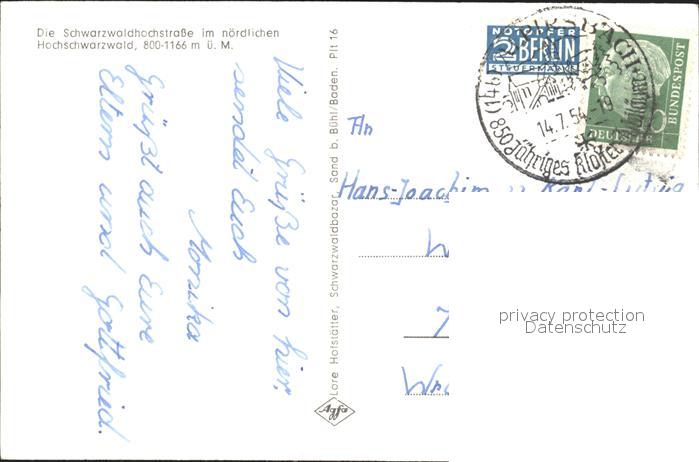 Die Schwarzwaldhochstraße im nördlichen
Hochschwarzwald, 800-1166 m ü. M.
Viele Grüße von hier
sendet Euch
Monika
Grüßt auch Eure
Eltern und Gottfried.
Lore Hofstätter, Schwarzwaldbazar, Sand b. Bühl/Baden. Plt 16
Agfa
NOTOPFER
2 BERLIN
STEUERMARKE
14.7.54.-19
850 jähriges Kloster
DEUTSCHE
BUNDESPOST
An
Hans-Joachim u. Karl-Ludwig
privacy protection
Datenschutz